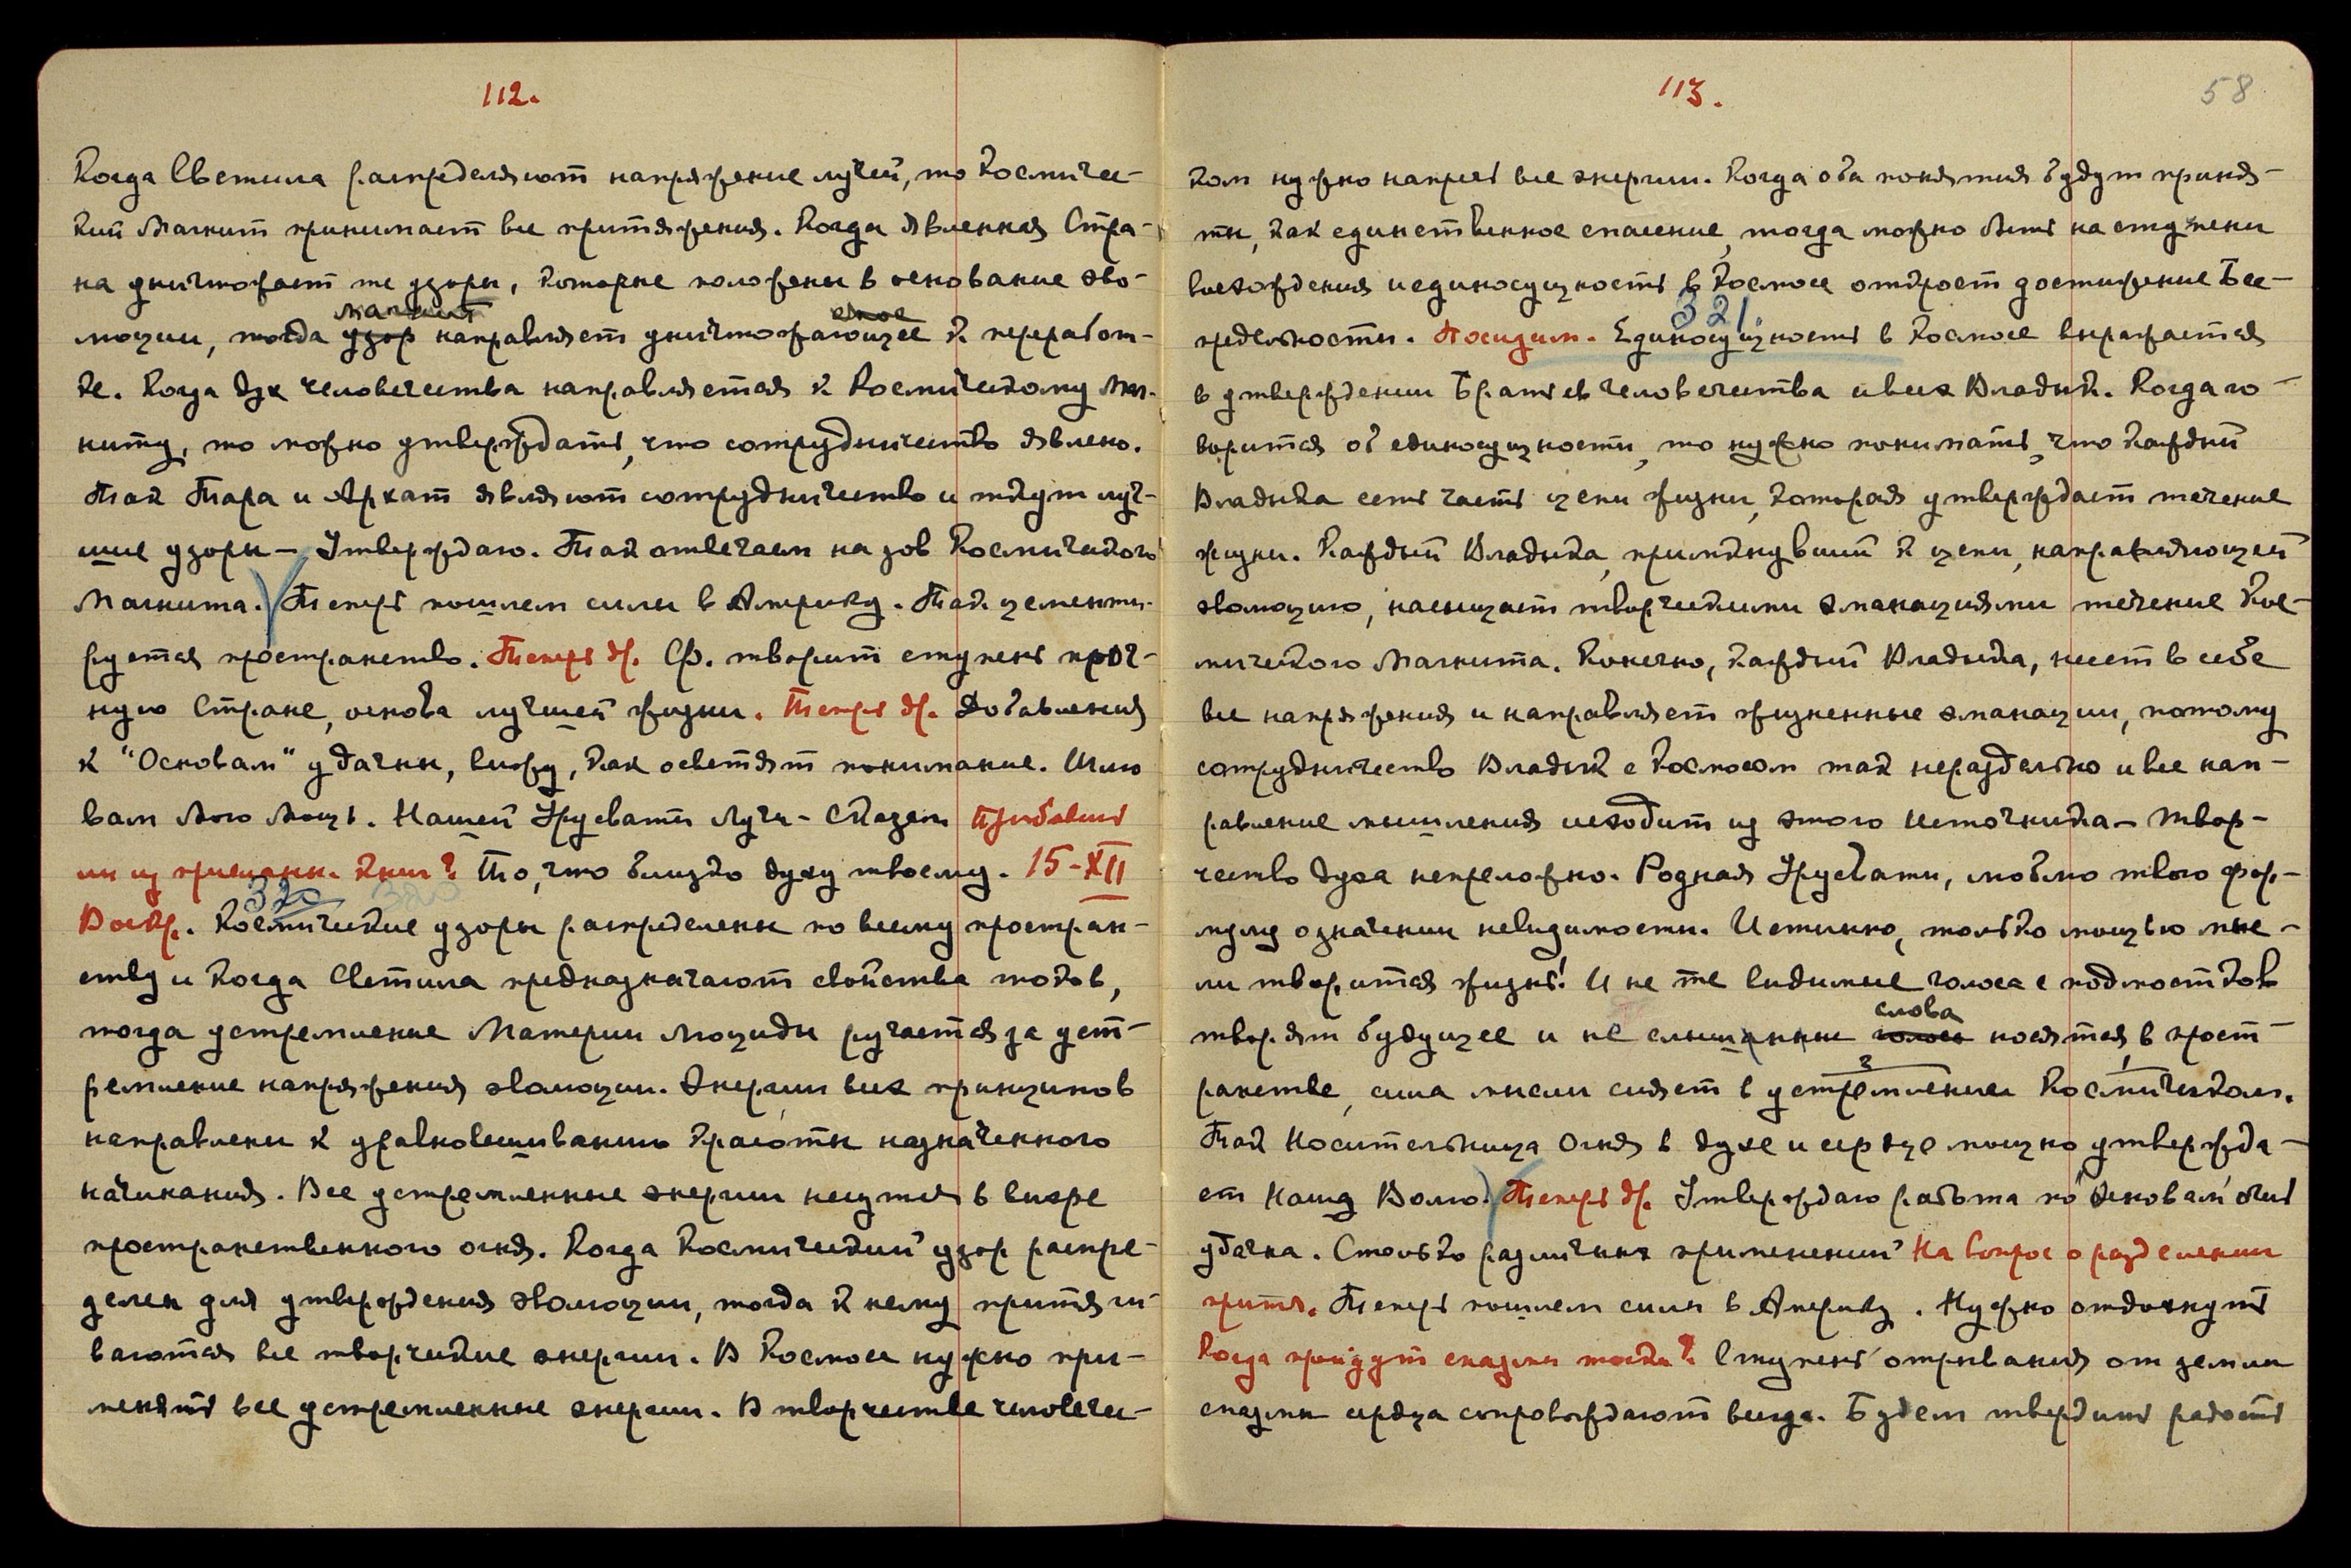 112.
Когда Светила распределяют напряжение лучей, то Космичес-
кий Магнит принимает все притяжения. Когда явленная Стра-
на уничтожает те узоры, которые положены в основание эво-
магнит
люции, тогда узор направляет уничтожающее к переработ-
ке. Когда дух человечества направляется к Космическому Маг-
ниту, то можно утверждать, что сотрудничество явлено.
Так Тара и Архат являют сотрудничество и ткут луч-
шие узоры – Утверждаю. Так отвечаем на зов Космического
Магнита. Теперь пошлем силы в Америку. Так цементи-
руется пространство. Теперь др. Ф. творит ступень проч-
ную Стране, основа лучшей жизни. Теперь др. Добавления
к "Основам" удачны, вижу, как осветят понимание. Шлю
вам Мою Мощь. Нашей Урусвати Лучи - Скажем Прибавить
ли из примечан. книг? То, что близко духу твоему. 15-XII
320 320
Воскр. Космические узоры распределены по всему простран-
ству и когда Светила предназначают свойства токов,
тогда устремление Материи Люциды ручается за уст-
ремление напряжения эволюции. Энергии всех принципов
направлены к уравновешиванию красоты назначенного
начинания. Все устремленные энергии несутся в вихре
пространственного огня. Когда Космический узор распре-
делен для утверждения эволюции, тогда к нему притяги-
ваются все творческие энергии. В Космосе нужно при-
менять все устремленные энергии. В творчестве человечес-
113.
58
ком нужно напрячь все энергии. Когда оба понятия будут приня-
ты, как единственное спасение, тогда можно ждать наступления
восхождения и единосущность в Космосе откроет достижение Бес-
321.
предельности. Посидим. Единосущность в Космосе выражается
в утверждении Братьев человечества и всех Владык. Когда го-
ворится об единосущности, то нужно понимать, что каждый
Владыка есть часть цепи жизни, которая утверждает течение
жизни. Каждый Владыка, примкнувший к цепи, направляющей
эволюцию, насыщает творческими эманациями течение Кос-
мического Магнита. Конечно, каждый Владыка, несет в себе
все напряжения и направляет жизненные эманации, потому
сотрудничество Владык с Космосом так нераздельно и все нап-
равление мышления исходит из этого Источника – твор-
чество духа непреложно. Родная Урусвати, люблю твою фор-
мулу означении невидимости. Истинно, только мощью мыс-
ли творится жизнь! И не те видимые голоса с подмостков
слова
творят будущее и не слышанные голоса носятся в прост-
2 1
ранстве, сила мысли сияет в устремлении Космическом.
Так Носительница Огня в духе и сердце мощно утвержда-
ет Нашу Волю. Теперь др. Утверждаю работа по "Основам" очень
удачна. Столько различных применений На вопрос о разделении
притя. Теперь пошлем силы в Америку. Нужно отдохнуть
Когда пройдут спазмы тоски? Ступень отрывания от земли
спазмы сердца сопровождают всегда. Будем твердить радость